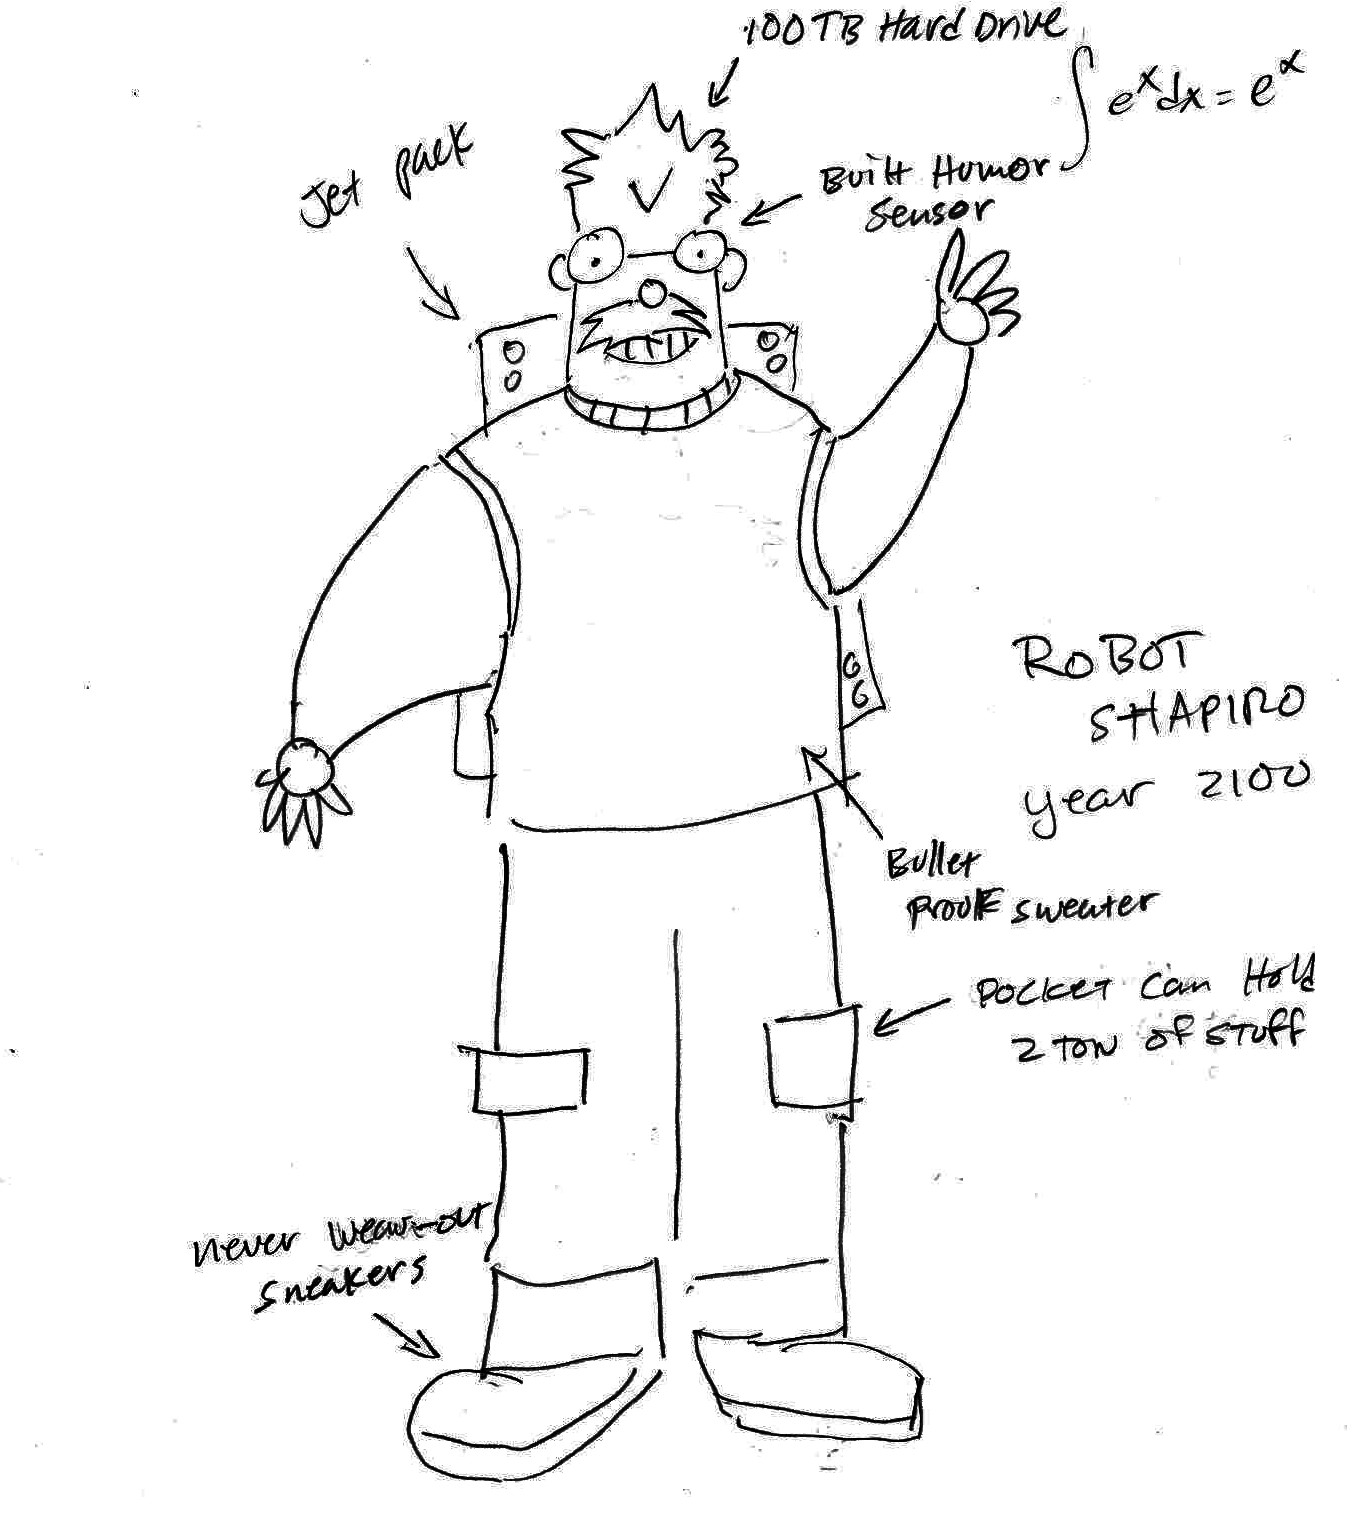 100TB Hard Drive
∫ eˣdx = eˣ
Jet pack
Built Humor
Sensor
ROBOT
SHAPIRO
year 2100
Bullet
Proof sweater
Pocket Can Hold
2 ton of stuff
never wear-out
sneakers